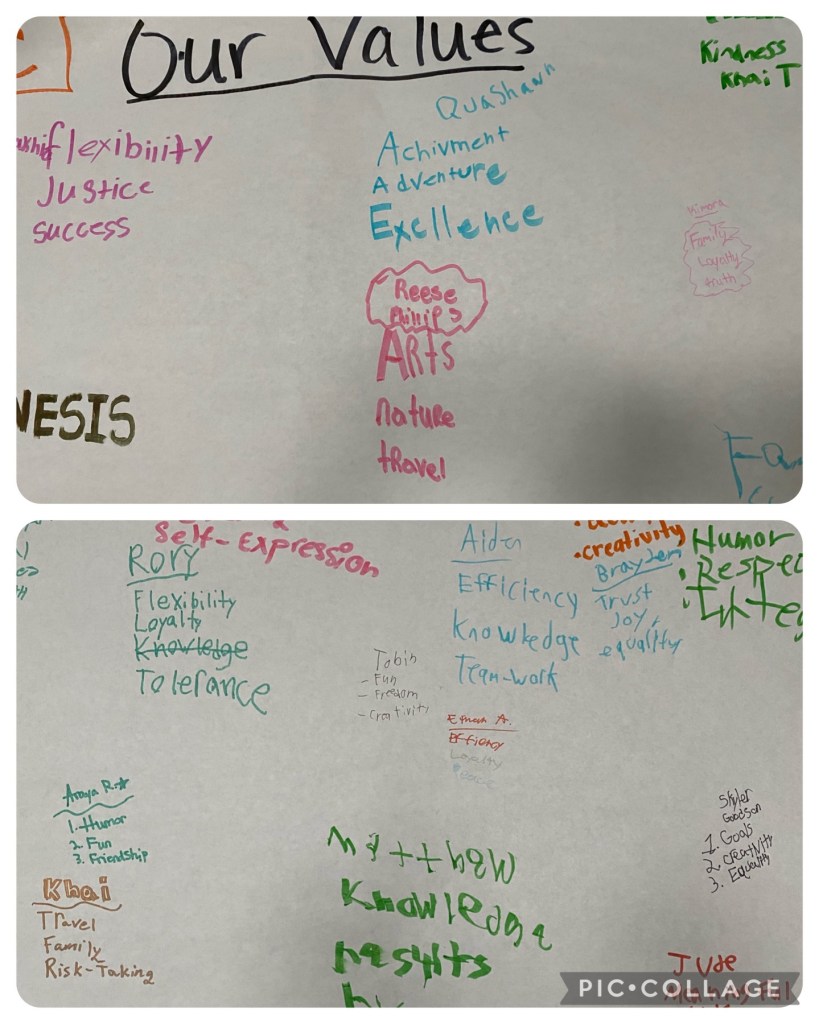 Our Values
Kindness
Khai T
QuaShawn
flexibility
Justice
success
Achivment
Adventure
Exellence
Nimora
Family
Loyalty
truth
Reese
Phillips
ARts
nature
travel
NESIS
Fa
Self-Expression
Rory
Flexibility
Loyalty
Knowledge
Tolerance
Aiden
Efficiency
Knowkedge
Team-work
•creativity
Brayden
Trust
Joy,
equality
Humor
•Respec
•Integ
Tobin
- Fun
- Freedom
- Creativity
Efficiency
Loyalty
Araya R.
1. Humor
2. Fun
3. Friendship
Khai
Travel
Family
Risk-Taking
Matthew
Knowledge
Skyler
Goodson
1. Goals
2. creativity
3. Equality
Jude
PIC•COLLAGE